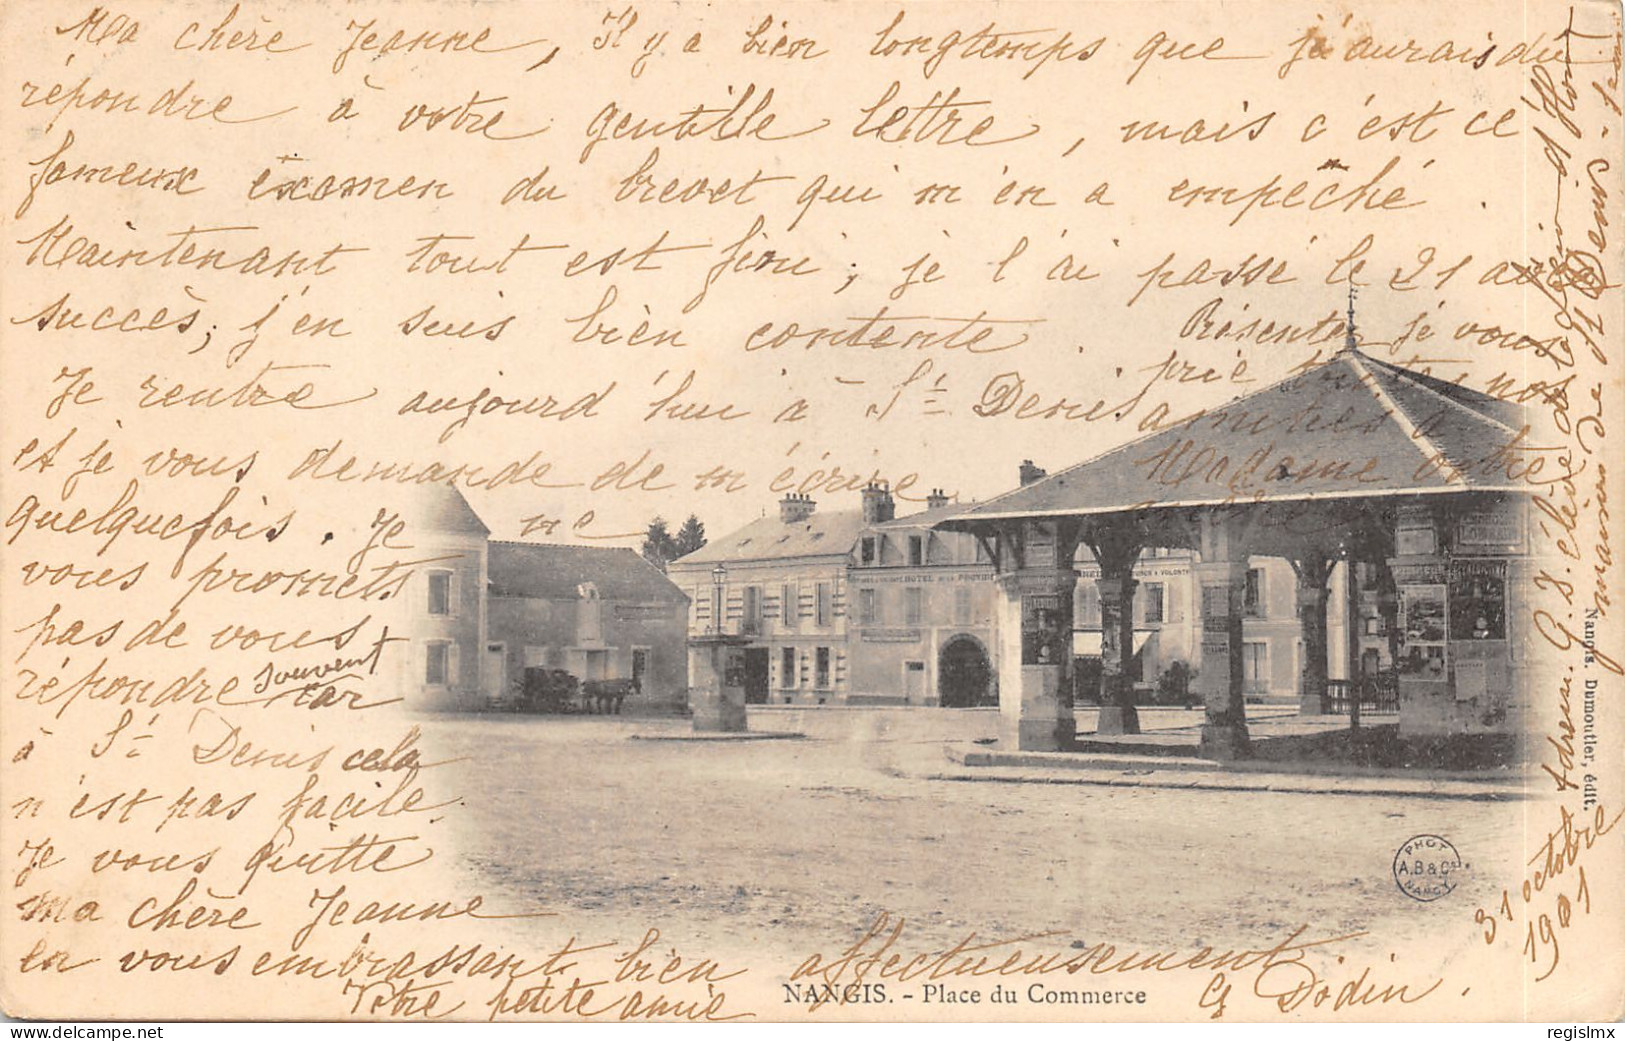 Ma chère Jeanne, Il y a bien longtemps que j'aurais du
répondre à votre gentille lettre, mais c'est ce
fameux examen du brevet qui m'en a empêché.
Maintenant tout est fini; je l'ai passé le 21 avec
succès; j'en suis bien contente.
Je rentre aujourd'hui à St Denis
et je vous demande de m'écrire
quelquefois. Je ne
vous promets
pas de vous
répondre souvent
car
à St Denis cela
n'est pas facile.
Je vous quitte
ma chère Jeanne
en vous embrassant bien affectueusement.
Votre petite amie
G Dodin.
Présentez je vous
prie toutes nos
amitiés à
Madame votre
31 octobre
1901
Adresse: G. D. élève de la Légion d'Hon
maison de St Denis - Seine
NANGIS. - Place du Commerce
Nangis. Dumoutier, édit.
HOTEL DE LA PROVIDENCE
PHOT
A.B & Cie
NANCY
www.delcampe.net
regislmx